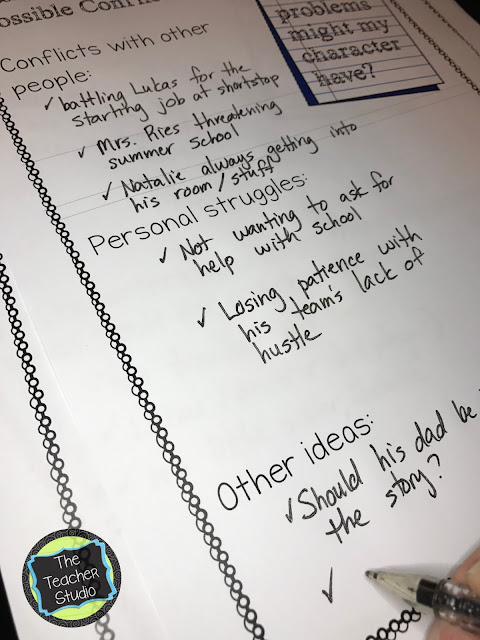 ossible Conflic
problems
might my
character
have?
Conflicts with other
people:
✓ battling Lukas for the
starting job at shortstop
✓ Mrs. Ries threatening
summer school
✓ Natalie always getting into
his room/stuff
Personal struggles:
✓ Not wanting to ask for
help with school
✓ Losing patience with
his team's lack of
hustle
Other ideas:
✓ Should his dad be
the story?
✓
The
Teacher
Studio